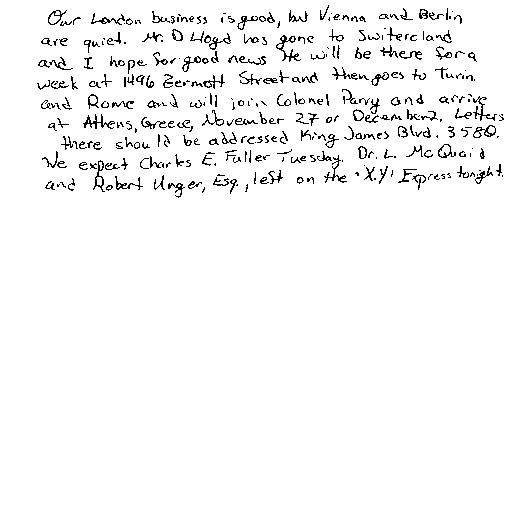 Our London business is good, but Vienna and Berlin
are quiet. Mr. D Lloyd has gone to Switercland
and I hope for good news He will be there for a
week at 1496 Zermott Street and then goes to Turin
and Rome and will join Colonel Parry and arrive
at Athens, Greece, November 27 or December 2. Letters
there should be addressed King James Blvd. 3580.
We expect Charles E. Fuller Tuesday. Dr. L. McQuaid
and Robert Unger, Esq., left on the "X.Y." Express tonight.